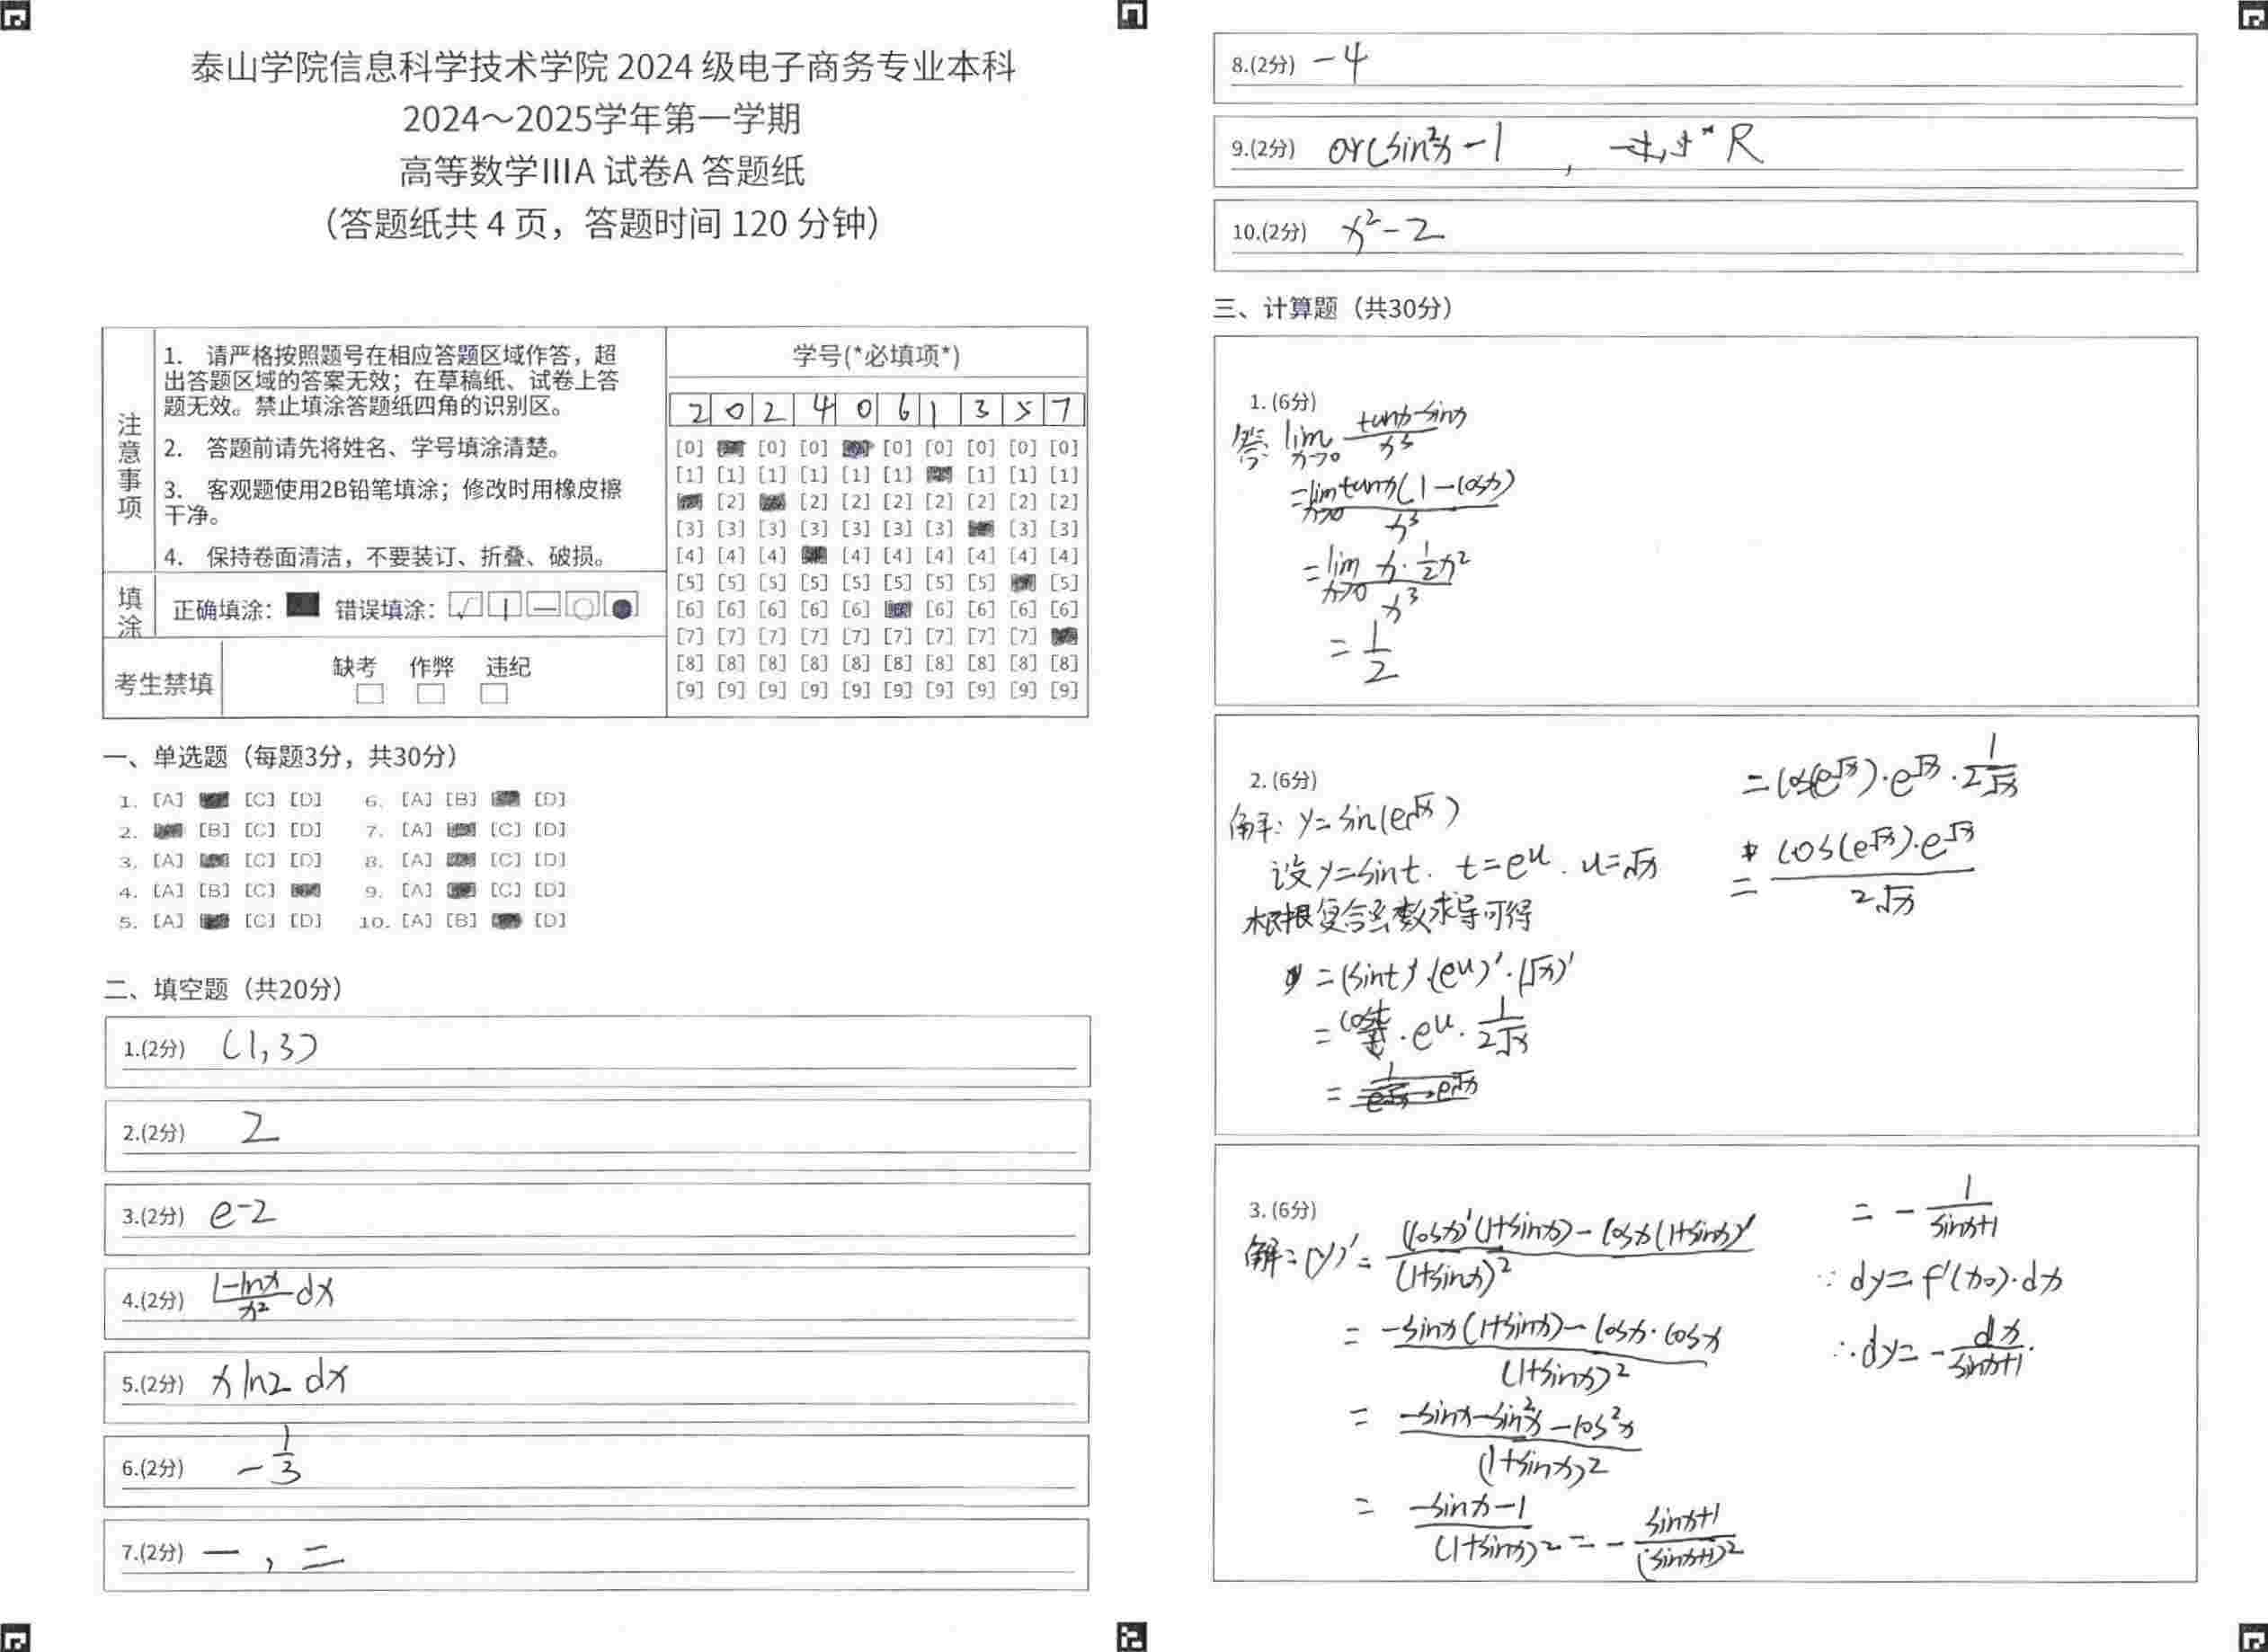 泰山学院信息科学技术学院 2024 级电子商务专业本科
2024～2025学年第一学期
高等数学IIIA 试卷A 答题纸
（答题纸共 4 页，答题时间 120 分钟）
注意事项
1. 请严格按照题号在相应答题区域作答，超
出答题区域的答案无效；在草稿纸、试卷上答
题无效。禁止填涂答题纸四角的识别区。
2. 答题前请先将姓名、学号填涂清楚。
3. 客观题使用2B铅笔填涂；修改时用橡皮擦
干净。
4. 保持卷面清洁，不要装订、折叠、破损。
填涂 正确填涂： 错误填涂：
考生禁填 缺考 作弊 违纪
学号(*必填项*)
2 0 2 4 0 6 1 3 5 7
[0] [0] [0] [0] [0] [0] [0] [0]
[1] [1] [1] [1] [1] [1] [1] [1] [1]
[2] [2] [2] [2] [2] [2] [2] [2]
[3] [3] [3] [3] [3] [3] [3] [3] [3]
[4] [4] [4] [4] [4] [4] [4] [4] [4]
[5] [5] [5] [5] [5] [5] [5] [5] [5]
[6] [6] [6] [6] [6] [6] [6] [6] [6]
[7] [7] [7] [7] [7] [7] [7] [7] [7]
[8] [8] [8] [8] [8] [8] [8] [8] [8] [8]
[9] [9] [9] [9] [9] [9] [9] [9] [9] [9]
一、单选题（每题3分，共30分）
1. [A] [C] [D] 6. [A] [B] [D]
2. [B] [C] [D] 7. [A] [C] [D]
3. [A] [C] [D] 8. [A] [C] [D]
4. [A] [B] [C] 9. [A] [C] [D]
5. [A] [C] [D] 10. [A] [B] [D]
二、填空题（共20分）
1.(2分) (1,3)
2.(2分) 2
3.(2分) e-2
4.(2分) (1-lnx)/x² dx
5.(2分) x ln2 dx
6.(2分) -1/3
7.(2分) 一 , 二
8.(2分) -4
9.(2分) arcsin²x-1 , R
10.(2分) x²-2
三、计算题（共30分）
1. (6分)
答: lim x→0 (tanx-sinx)/x³
= lim x→0 tanx(1-cosx)/x³
= lim x→0 (x·1/2x²)/x³
= 1/2
2. (6分)
解: y=sin(e^√x)
设y=sint. t=e^u. u=√x
根据复合函数求导可得
y' =(sint)'·(e^u)'·(√x)'
= cost·e^u·1/(2√x)
=
=cos(e^√x)·e^√x·1/(2√x)
= cos(e^√x)·e^√x/(2√x)
3. (6分)
解: (y)'= ((cosx)'(1+sinx)-cosx(1+sinx)')/(1+sinx)²
= (-sinx(1+sinx)-cosx·cosx)/(1+sinx)²
= (-sinx-sin²x-cos²x)/(1+sinx)²
= (-sinx-1)/(1+sinx)² = -(sinx+1)/(sinx+1)²
= -1/(sinx+1)
∵ dy=f'(x₀)·dx
∴dy=-dx/(sinx+1).